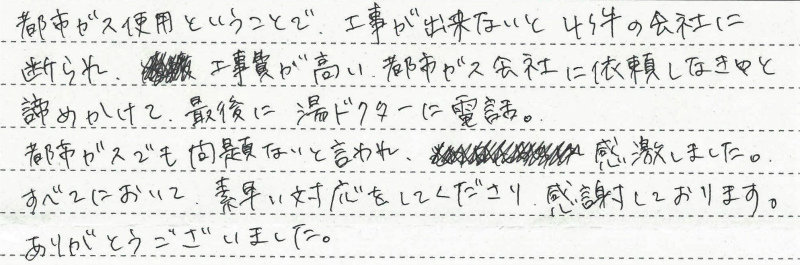 都市ガス使用ということで、工事が出来ないと4.5件の会社に
断られ、工事費が高い、都市ガス会社に依頼しなきゃと
諦めかけて、最後に湯ドクターに電話。
都市ガスでも問題ないと言われ、感激しました。
すべてにおいて、素早い対応をしてくださり、感謝しております。
ありがとうございました。